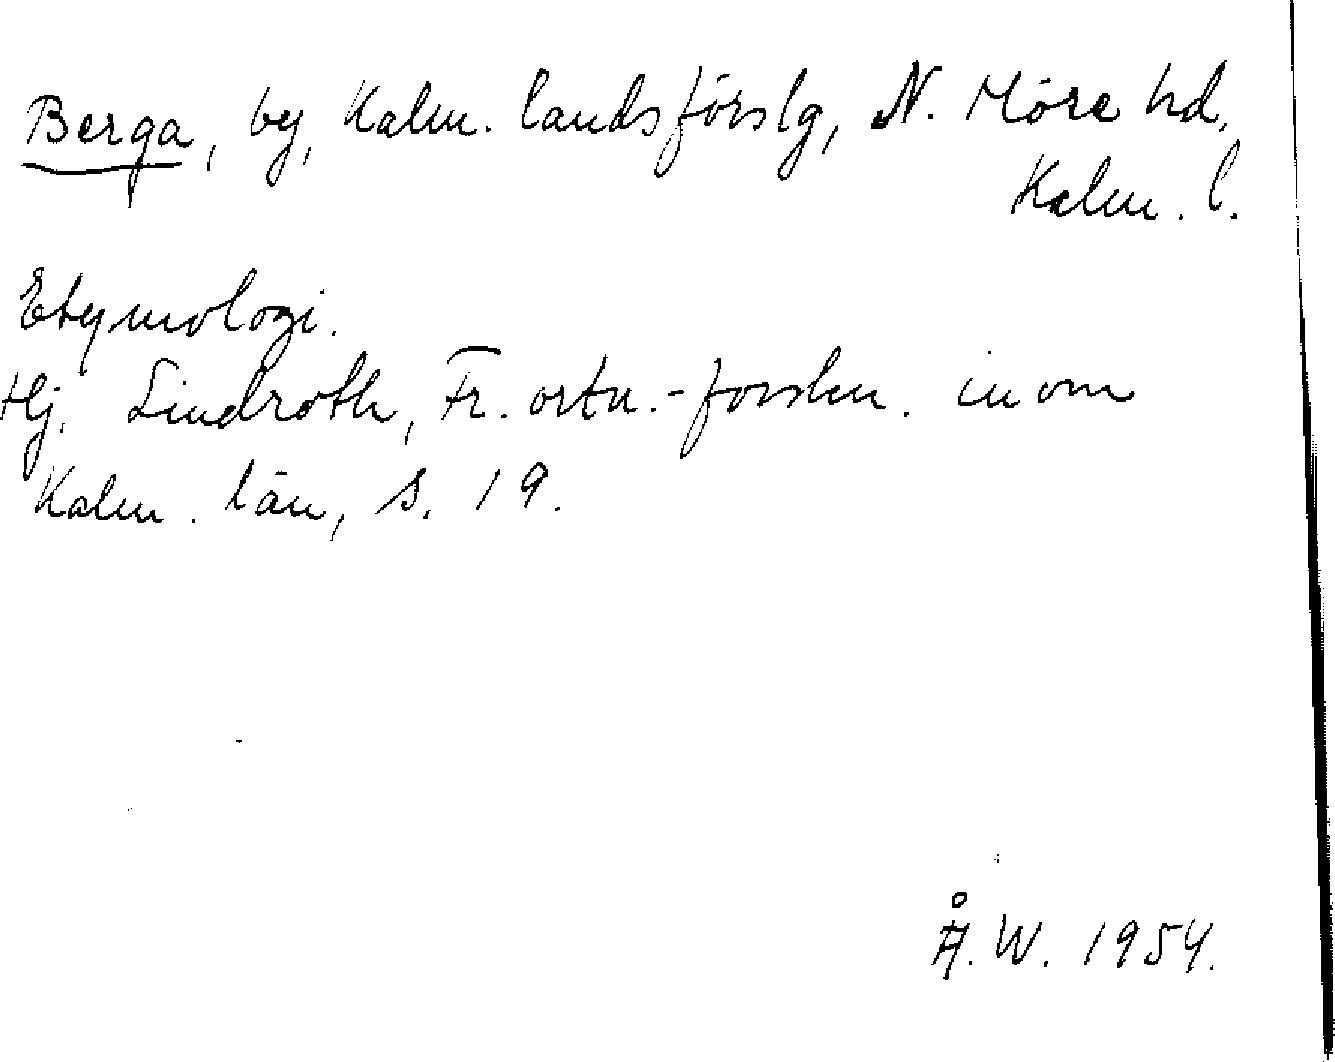 Berga, by, Kalm. landsförslg, N. Möre hd,
Kalm. l.
Etymologi.
Hj. Lindroth, Fr. ortn.-forskn. inom
Kalm. län, s. 19.
Å. W. 1954.